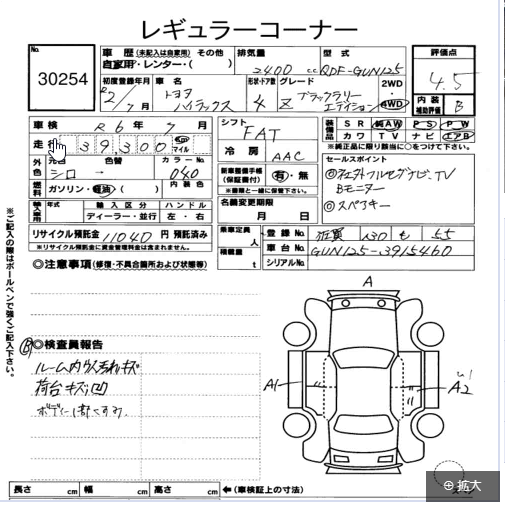 レギュラーコーナー
No. 30254
車歴(未記入は自家用) その他
自家用・レンター・( )
排気量 2400 cc
型式 QDF-GUN125
評価点 4.5
初度登録年月 R2/7月
車名 トヨタ ハイラックス
形状・ドア数 4
グレード Z ブラックラリーエディション
2WD・4WD
内装補助評価 B
車検 R6年7月
シフト FAT
装備品 SR 純AW PS PW
カワ TV ナビ エアB
※純正品に限り該当に○をつけて下さい。
走行 39300 km マイル
冷房 AAC
外色 元色 シロ 色替 →
カラーNo. 040
セールスポイント
◎社外フルセグナビ、TV
Bモニター
◎スペアキー
燃料 ガソリン・軽油・( )
内装色
新車整備手帳(保証書付) 有・無
※書類と一緒に保管下さい。
輸入車用 年式 輸入区分 ハンドル
ディーラー・並行 左・右
名義変更期限
月 日
リサイクル預託金 11040 円 預託済み
※リサイクル預託金に資金管理料金は含まれません。
乗車定員 人
積載量 t
登録No. 佐賀 130 も 55
車台No. GUN125-3915460
シリアルNo.
◎注意事項(修復・不具合箇所および状態等)
※ご記入の際はボールペンで強くご記入下さい。
◎検査員報告
ルーム内ウス汚れキズ
荷台キズ凹
ボディー1部くすみ.
A
A1
A2
長さ cm 幅 cm 高さ cm ←(車検証上の寸法)
拡大